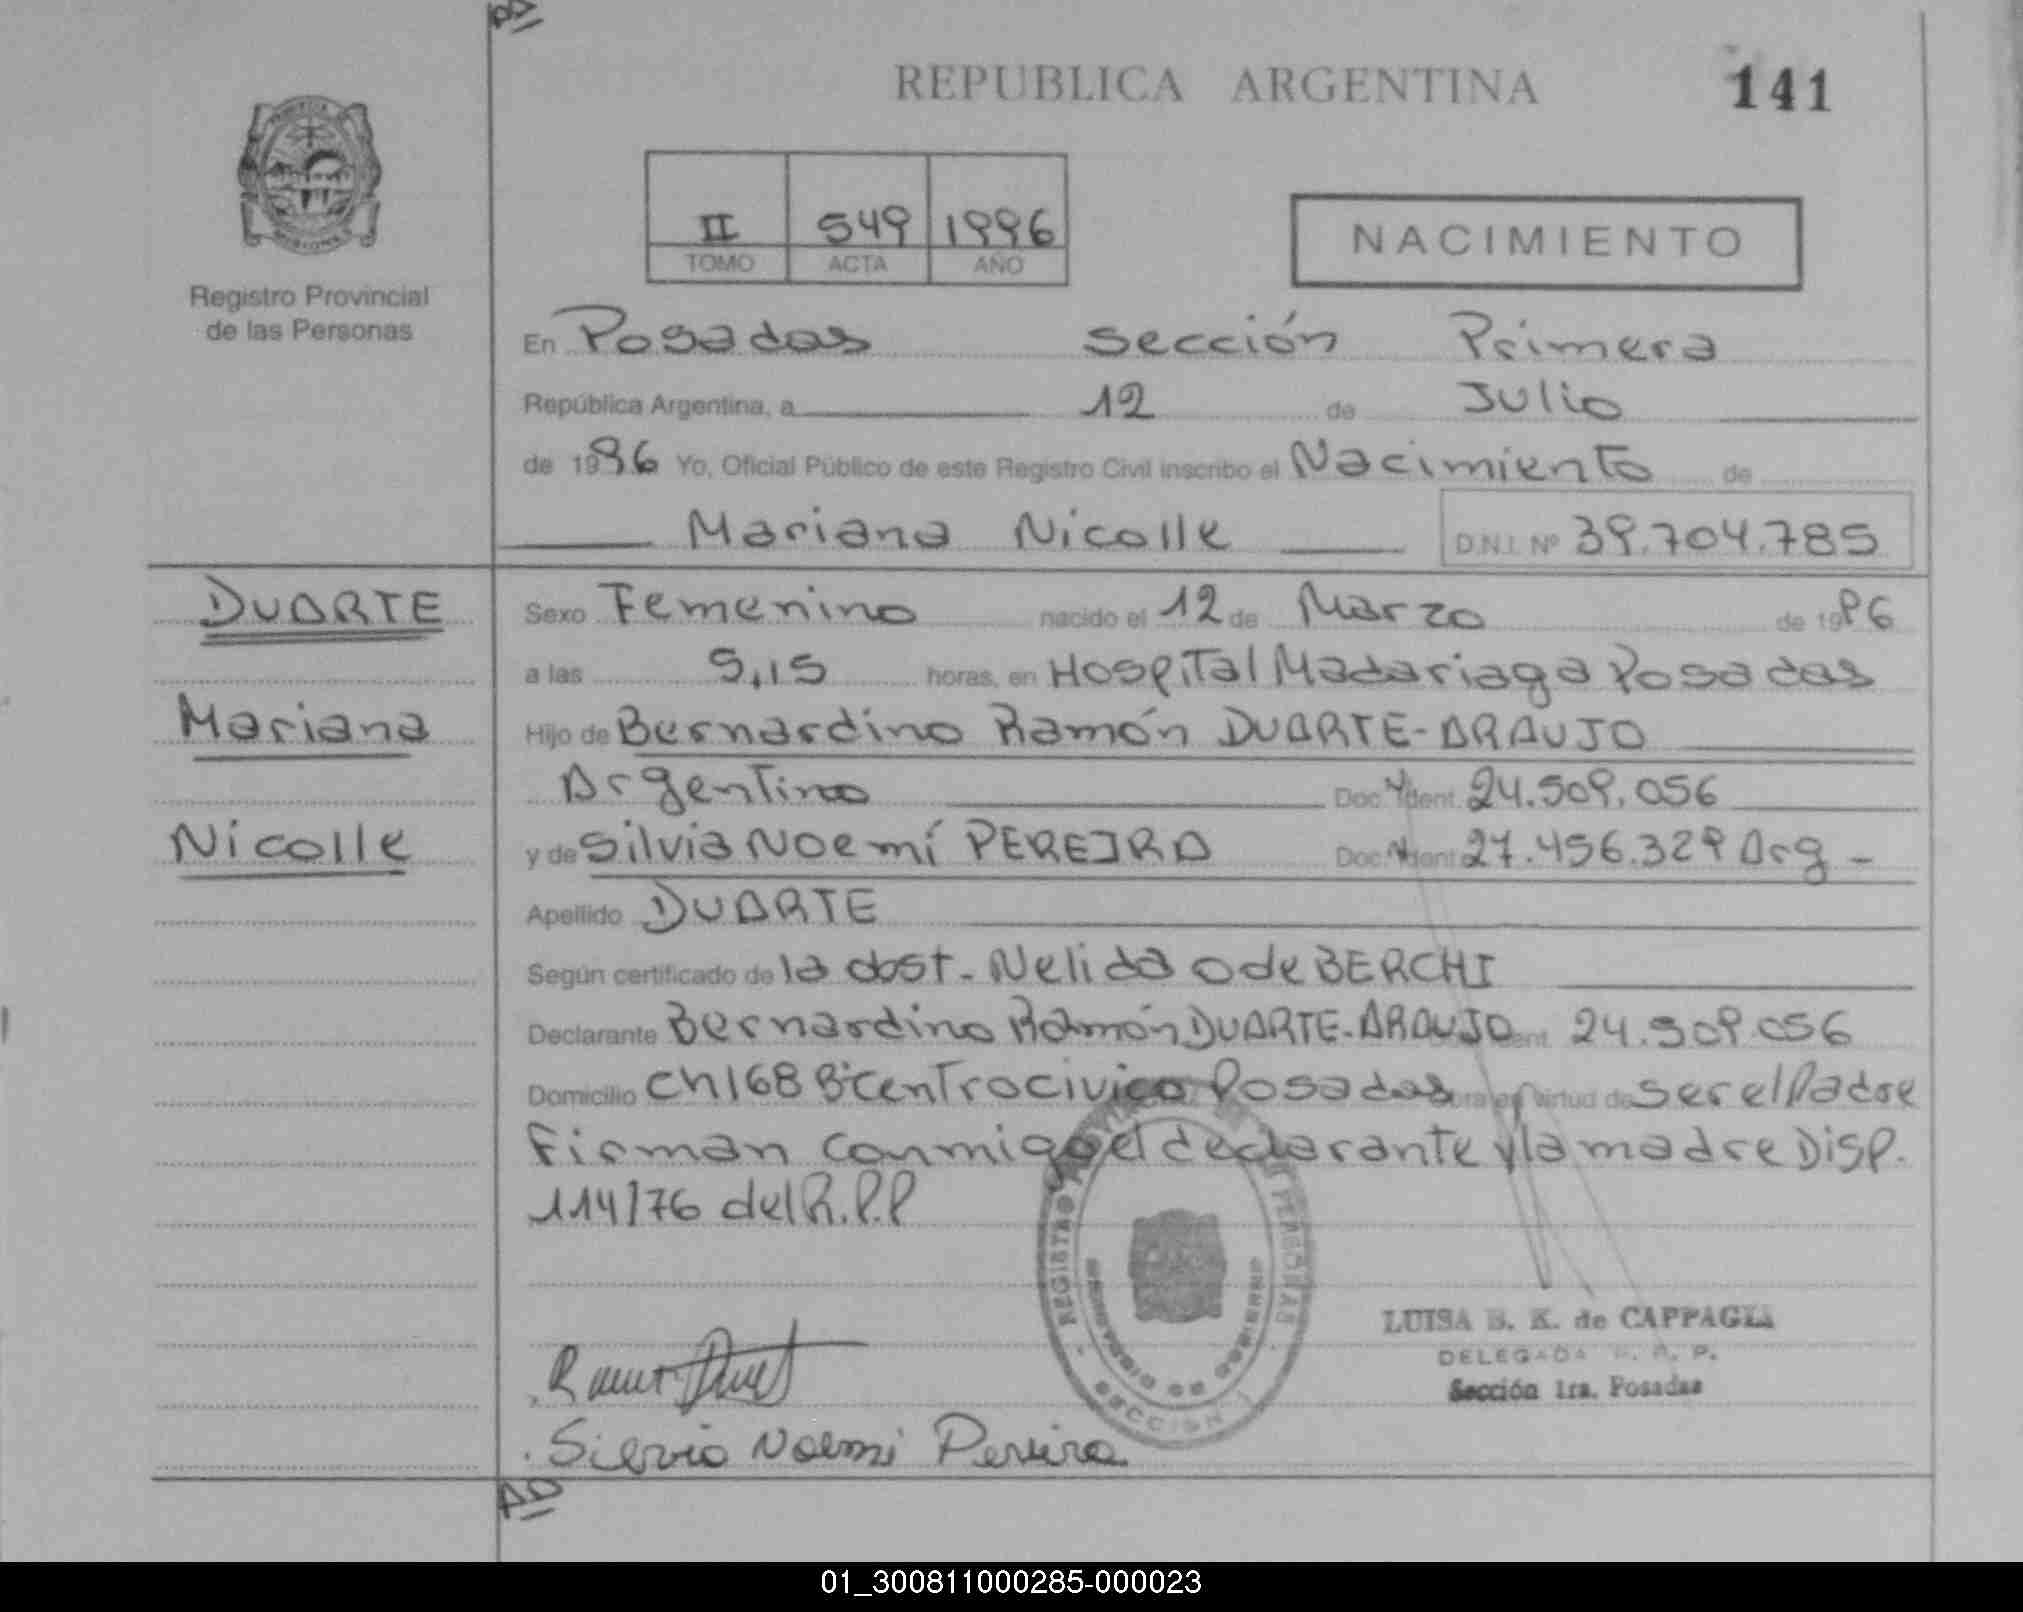 REPUBLICA ARGENTINA
141
II 549 1996
TOMO ACTA AÑO
NACIMIENTO
Registro Provincial
de las Personas
En Posadas sección Primera
República Argentina, a 12 de Julio
de 1996 Yo, Oficial Público de este Registro Civil inscribo el Nacimiento de
Mariana Nicolle D.N.I. Nº 39.704.785
DUARTE
Mariana
Nicolle
Sexo Femenino nacido el 12 de Marzo de 1996
a las 5,15 horas, en Hospital Madariaga Posadas
Hijo de Bernardino Ramón DUARTE-ARAUJO
Argentino Doc. Ident. 24.509.056
y de Silvia Noemí PEREIRA Doc. Ident. 27.456.329 Arg -
Apellido DUARTE
Según certificado de la obst. Nelida O de BERCHI
Declarante Bernardino Ramón DUARTE-ARAUJO 24.509.056
Domicilio ch 168 Bº centro civico Posadas obra en virtud de ser el Padre
Firman conmigo el declarante y la madre Disp.
114/76 del R.P.P
REGISTRO PROVINCIAL DE LAS PERSONAS
MINISTERIO DE GOBIERNO
SECCION 1
LUISA B. K. de CAPPAGLI
DELEGADA R. P. P.
Sección 1ra. Posadas
Silvia Noemi Pereira
01_300811000285-000023